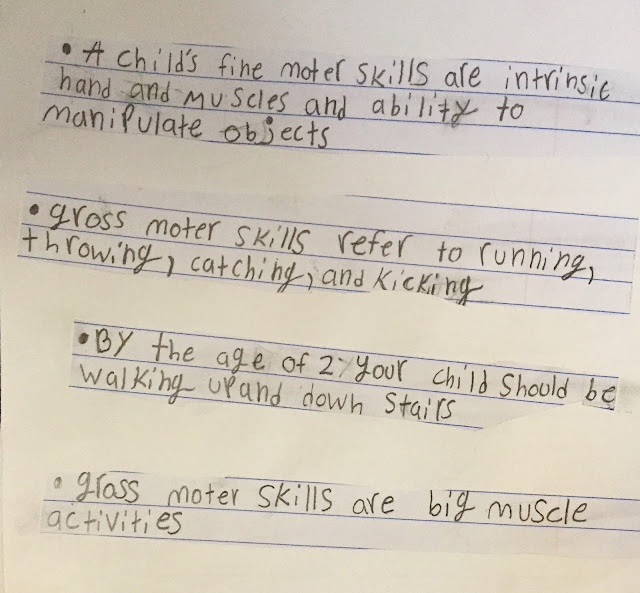 • A child's fine moter skills are intrinsic
hand and muscles and ability to
manipulate objects
• gross moter skills refer to running,
throwing, catching, and kicking
• By the age of 2, your child should be
walking up and down stairs
• gross moter skills are big muscle
activities